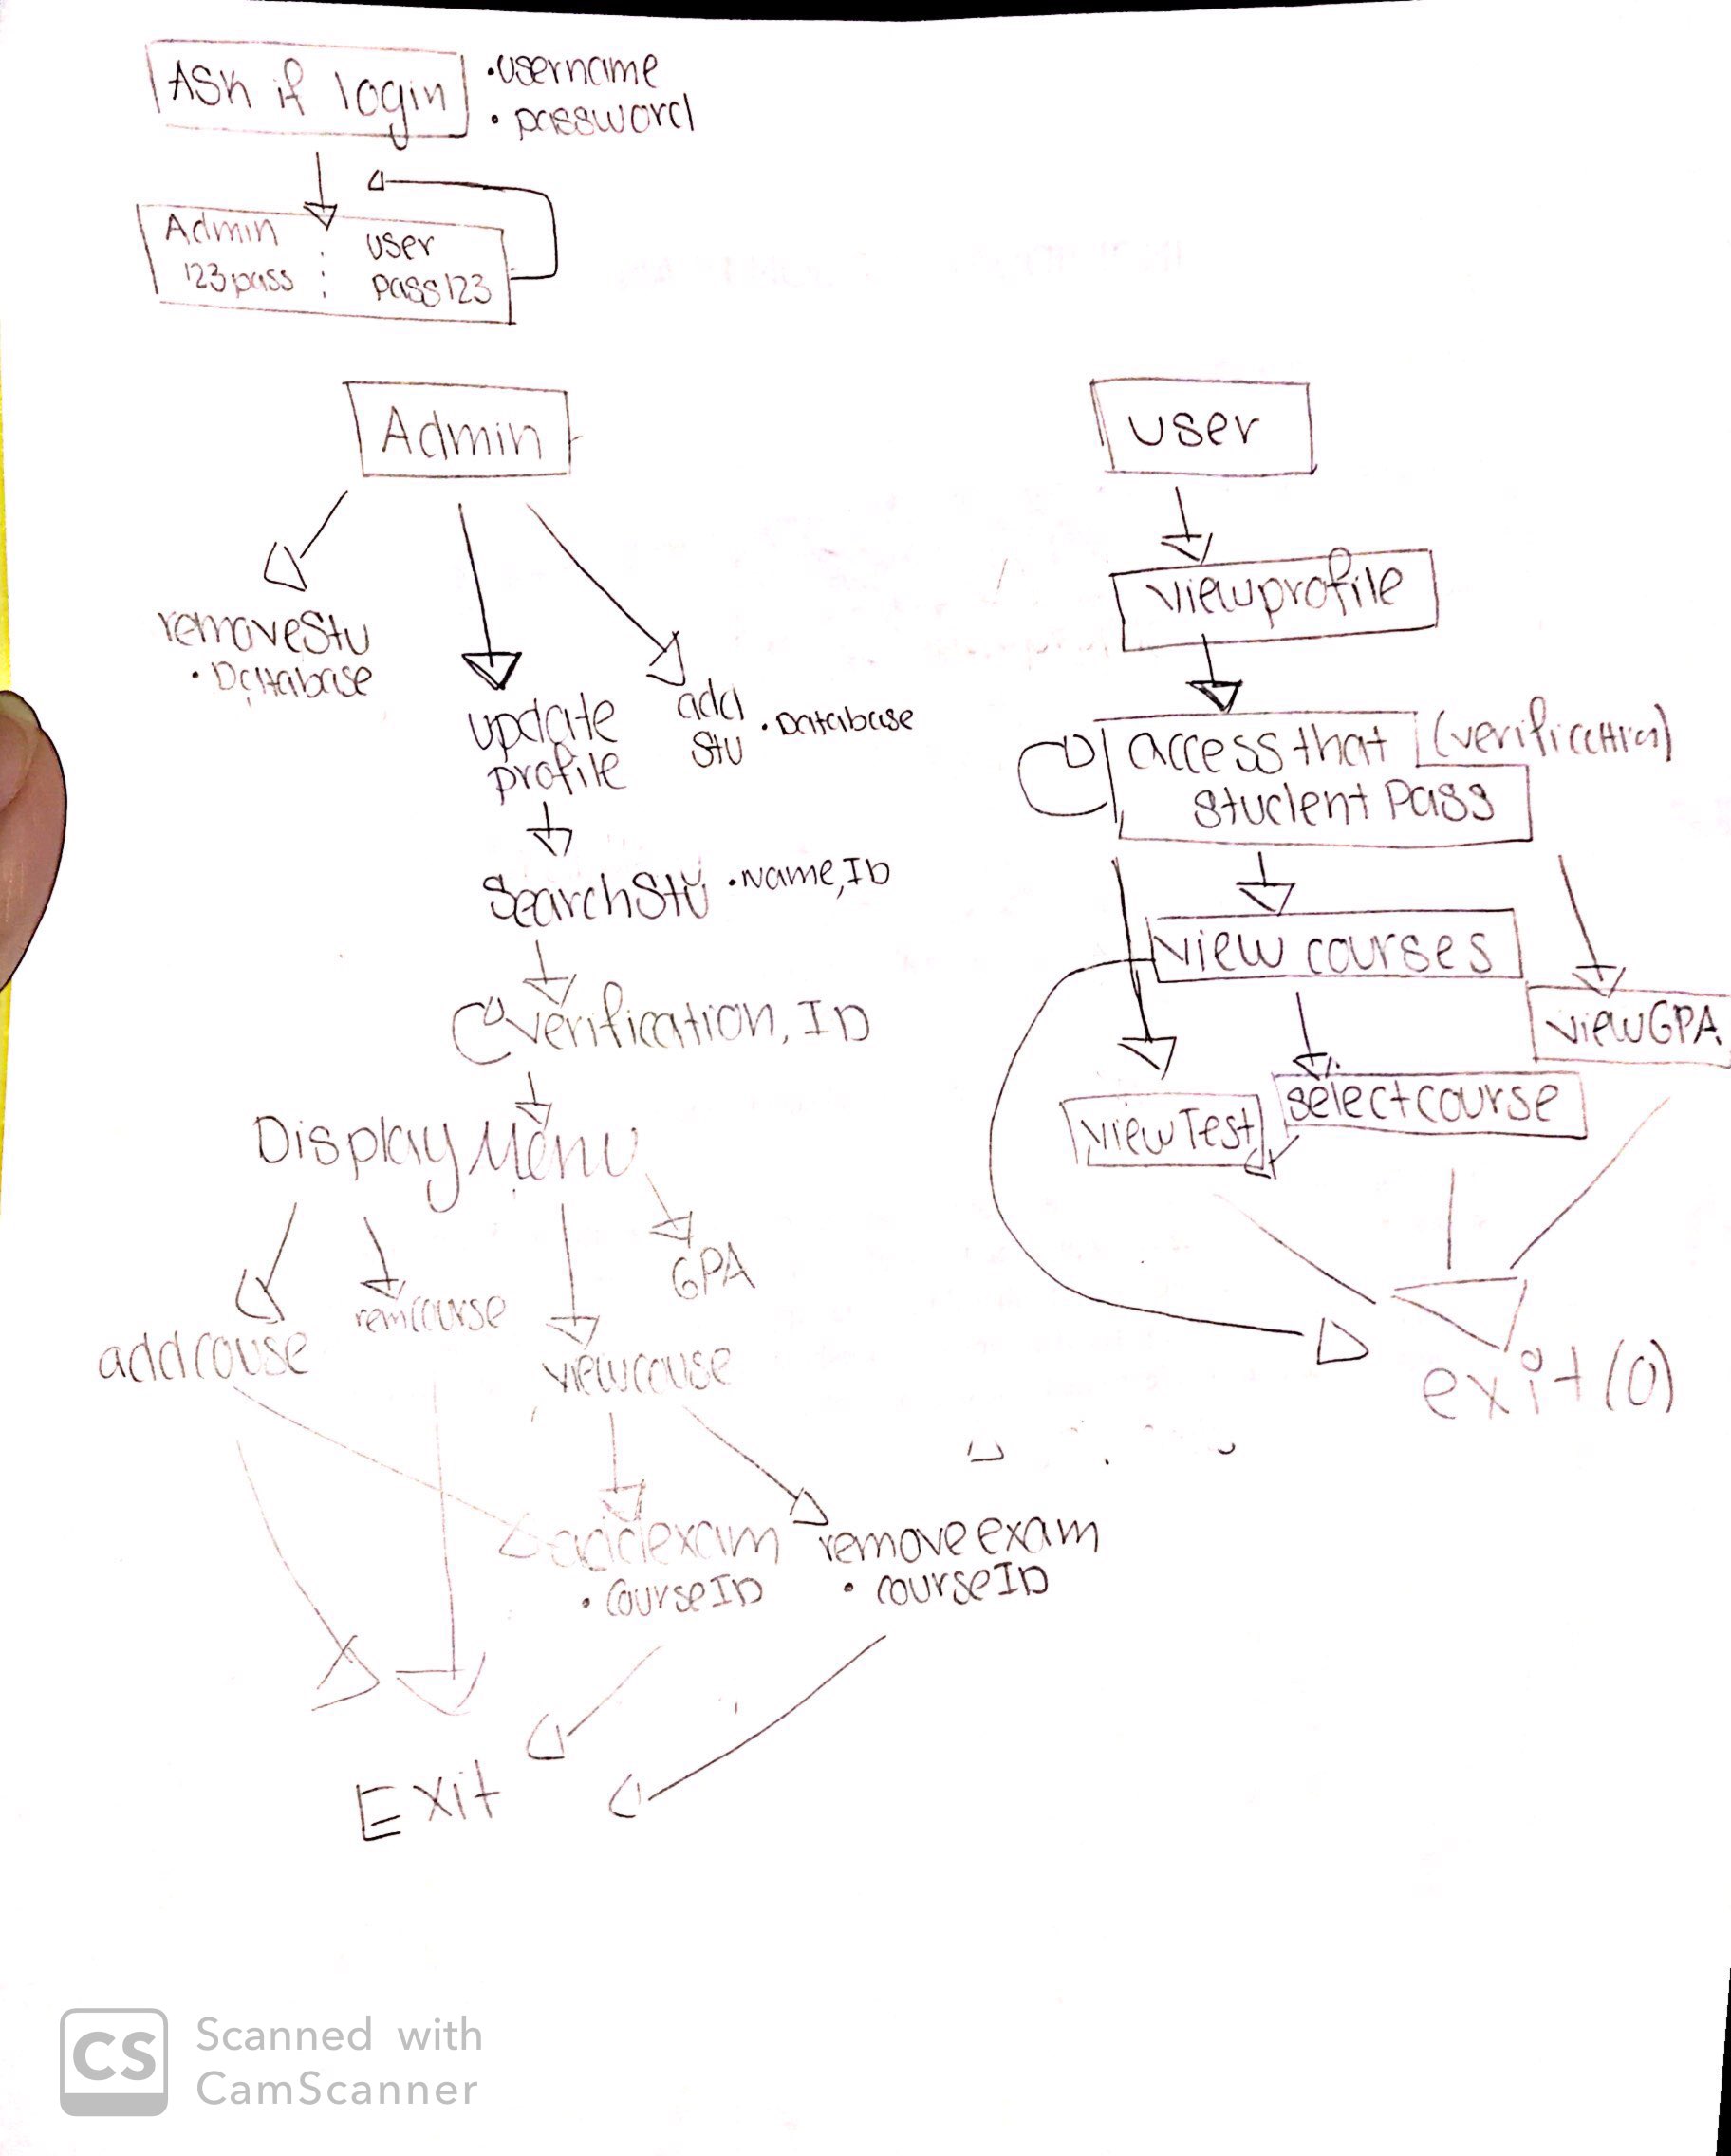 ASK if login
•username
•password
Admin
123pass
:
user
pass123
Admin
removeStu
•Database
update
profile
add
Stu
•Database
SearchStu •Name,ID
Verification, ID
DisplayMenu
addcouse
remcourse
viewcouse
GPA
addexam
•CourseID
removeexam
•courseID
Exit
user
viewprofile
access that
student Pass
(verification)
view courses
viewGPA
viewTest
selectcourse
exit(0)
CS
Scanned with
CamScanner